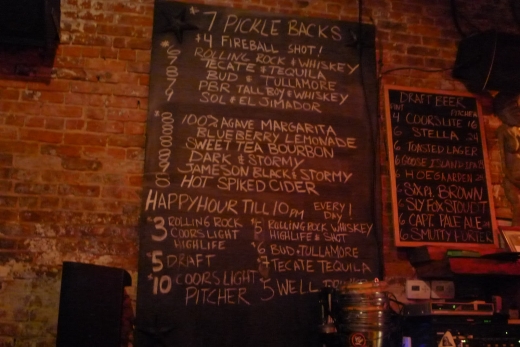 $7 PICKLE BACKS
$4 FIREBALL SHOT!
6 ROLLING ROCK & WHISKEY
7 TECATE & TEQUILA
8 BUD & TULLAMORE
7 PBR TALL BOY & WHISKEY
9 SOL & EL JIMADOR
100% AGAVE MARGARITA
BLUEBERRY LEMONADE
SWEET TEA BOURBON
DARK & STORMY
JAMESON BLACK & STORMY
HOT SPIKED CIDER
HAPPY HOUR TILL 10PM EVERY DAY!
$3 ROLLING ROCK
COORS LIGHT
HIGHLIFE
$5 DRAFT
$10 COORS LIGHT
PITCHER
$5 ROLLING ROCK WHISKEY
HIGHLIFE & SHOT
$6 BUD & TULLAMORE
$7 TECATE TEQUILA
$5 WELL
DRAFT BEER
PINT PITCHER
4 COORS LITE 16
6 STELLA
6 TOASTED LAGER
6 GOOSE ISLAND
6 HOEGARDEN
6 BROWN
6 SLY FOX STOUT
6 CAPT. PALE ALE
6 SMUTTY